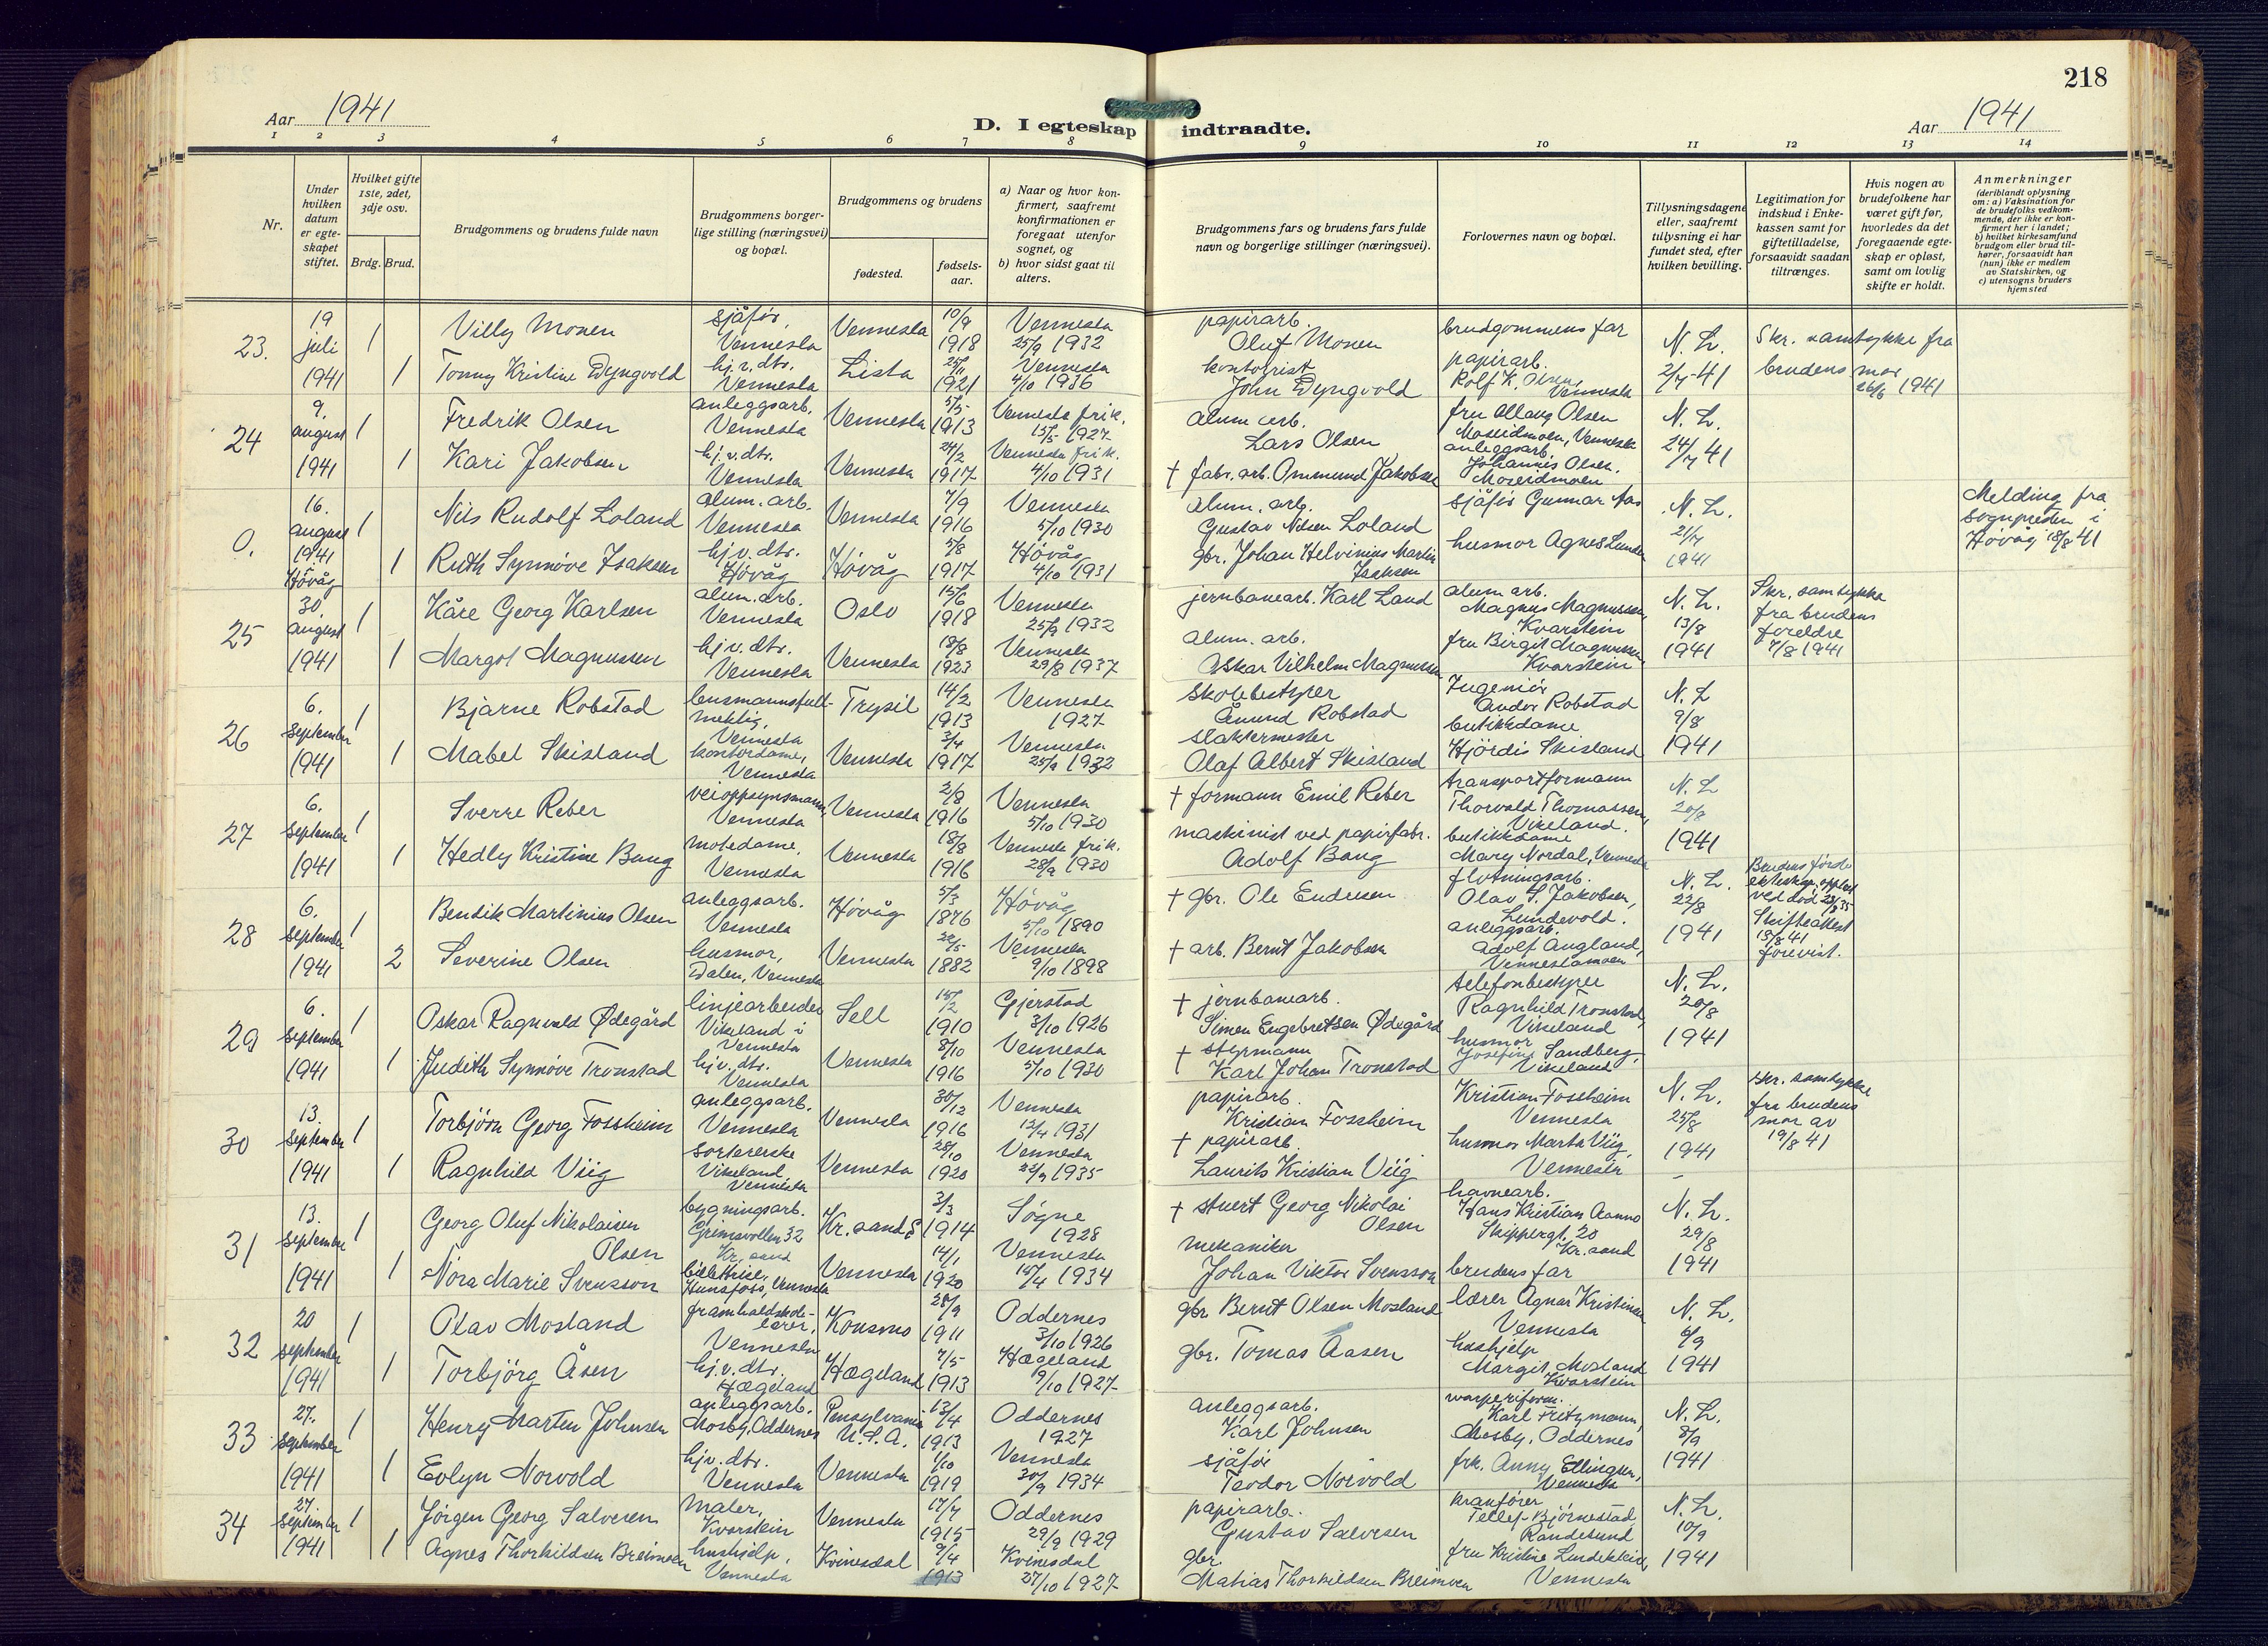 218
Aar 1941
D. I egteskap indtraadte.
Aar 1941
1 2 3 4 5 6 7 8 9 10 11 12 13 14
Nr.
Under hvilken datum er egteskapet stiftet.
Hvilket gifte 1ste, 2det, 3dje osv.
Brdg. Brud.
Brudgommens og brudens fulde navn
Brudgommens borgerlige stilling (næringsvei) og bopæl.
Brudgommens og brudens
fødested.
fødselsaar.
a) Naar og hvor konfirmert, saafremt konfirmationen er foregaat utenfor sognet, og
b) hvor sidst gaat til alters.
Brudgommens fars og brudens fars fulde navn og borgerlige stillinger (næringsvei).
Forlovernes navn og bopæl.
Tillysningsdagene eller, saafremt tillysning ei har fundet sted, efter hvilken bevilling.
Legitimation for indskud i Enkekassen samt for giftetilladelse, forsaavidt saadan tiltrænges.
Hvis nogen av brudefolkene har været gift før, hvorledes da det foregaaende egteskap er opløst, samt om lovlig skifte er holdt.
Anmerkninger
(deriblandt oplysning om: a) Vaksination for de brudefolks vedkommende, der ikke er konfirmert her i landet; b) hvilket kirkesamfund brudgom eller brud tilhører, forsaavidt han (hun) ikke er medlem av Statskirken, og c) utensogns bruders hjemsted
23. 19 juli 1941
1 Villy Monen sjåfør, Vennesla Vennesla 10/9 1918 Vennesla 25/9 1932 papirarb. Oluf Monen brudgommens far N. L. 2/7-41 Skr. samtykke fra brudens mor 26/6 1941
1 Tonny Kristine Dyngvold hj.v.dtr. Vennesla Lista 25/11 1921 Vennesla 4/10 1936 kontorist John Dyngvold papirarb. Rolf K. Olsen, Vennesla
24 9. august 1941
1 Fredrik Olsen anleggsarb. Vennesla Vennesla 5/5 1913 Vennesla frik. 15/5 1927 alum arb. Lars Olsen fru Ollaug Olsen Moseidmoen, Vennesla N. L. 24/7 41
1 Kari Jakobsen hj.v.dtr. Vennesla Vennesla 24/2 1917 Vennesla frik. 4/10 1931 † fabr. arb. Ommund Jakobsen anleggsarb. Johannes Olsen. Moseidmoen
0. 16. august 1941 Høvåg
1 Nils Rudolf Loland alum. arb. Vennesla Vennesla 7/9 1916 Vennesla 5/10 1930 alum. arb. Gustav Nilsen Loland sjåfør Gunnar Aas N. L. 21/7 1941 Melding fra sognpresten i Høvåg 18/8 41
1 Ruth Synnøve Isaksen hj.v.dtr. Høvåg Høvåg 5/8 1917 Høvåg 4/10 1931 gbr. Johan Helvinius Martin Isaksen husmor Agnes Lunden
25 30. august 1941
1 Kåre Georg Karlsen alum. arb. Vennesla Oslo 15/6 1918 Vennesla 25/9 1932 jernbanearb. Karl Land alum arb. Magnus Magnussen, Kvarstein N. L. 13/8 1941 Skr. samtykke fra brudens foreldre 7/8 1941
1 Margot Magnussen hj.v.dtr. Vennesla Vennesla 18/8 1923 Vennesla 29/8 1937 alum. arb. Oskar Vilhelm Magnussen fru Birgit Magnussen, Kvarstein
26 6. september 1941
1 Bjarne Robstad lensmannsfullmektig, Vennesla Trysil 14/2 1913 Vennesla 1927 Skolebestyrer Åmund Robstad Ingeniør Andor Robstad N. L 9/8 1941
1 Mabel Skisland kontordame, Vennesla Vennesla 3/4 1917 Vennesla 25/9 1932 slaktermester Olaf Albert Skisland butikkdame Hjördis Skisland
27 6. september 1941
1 Sverre Reber veioppsynsmann, Vennesla Vennesla 2/8 1916 Vennesla 5/10 1930 † formann Emil Reber transportformann Thorvald Thomassen, Vikeland. N. L 20/8 1941
1 Hedly Kristine Bang motedame, Vennesla Vennesla 18/8 1916 Vennesla frik. 28/9 1930 maskinist ved papirfabr. Adolf Bang butikkdame Mary Nordal, Vennesla
28 6. september 1941
1 Bendik Martinius Olsen anleggsarb. Vennesla Høvåg 5/3 1876 Høvåg 5/10 1890 † gbr. Ole Endresen fløtningsarb. Olav S. Jakobsen, Lundevold. N. L. 22/8 1941 Brudens første ekteskap oppløst ved död 23/8 35 Skifteattest 15/8 41 forevist.
2 Severine Olsen husmor, Dalen, Vennesla Vennesla 22/5 1882 Vennesla 9/10 1898 † arb. Bernt Jakobsen anleggsarb. Adolf Augland, Venneslamoen
29 6. september 1941
1 Oskar Ragnvald Ødegård linjearbeider Vikeland i Vennesla Sell 15/2 1910 Gjerstad 3/10 1926 † jernbanearb. Simen Engebretsen Ødegård telefonbestyrer Ragnhild Tronstad, Vikeland N. L. 20/8 1941
1 Judith Synnöve Tronstad hj.v.dtr. Vennesla Vennesla 8/10 1916 Vennesla 5/10 1930 † styrmann Karl Johan Tronstad husmor Josefine Sandberg, Vikeland
30 13. september 1941
1 Torbjörn Georg Fossheim anleggsarb. Vennesla Vennesla 30/12 1916 Vennesla 12/4 1931 papirarb. Kristian Fossheim Kristian Fossheim Vennesla N. L. 25/8 1941 Skr. samtykke fra brudens mor av 19/8 41
1 Ragnhild Viig sortererske Vikeland, Vennesla Vennesla 28/10 1920 Vennesla 22/9 1935 † papirarb. Laurits Kristian Viig husmor Marta Viig, Vennesla
31 13. september 1941
1 Georg Oluf Nikolaisen Olsen bygningsarb. Grimsvollen 32 Kr. sand Kr. sand S 3/3 1914 Søgne 1928 † stuert Georg Nikolai Olsen havnearb. Hans Kristian Aanno Skippergt. 20 Kr. sand N. L. 29/8 1941
1 Nora Marie Svensson billettrise, Hunsfoss, Vennesla Vennesla 14/1 1920 Vennesla 15/4 1934 mekaniker Johan Viktor Svensson brudens far
32 20 september 1941
1 Olav Mosland framhaldskolelærer, Vennesla Konsmo 28/9 1911 Oddernes 3/10 1926 gbr. Bernt Olsen Mosland lærer Agnar Kristinsen Vennesla N. L. 6/9 1941
1 Torbjörg Åsen hj.v.dtr. Hægeland Hægeland 7/5 1913 Hægeland 9/10 1927 gbr. Tomas Aasen hushjelp Margit Mosland Kvarstein
33 27. september 1941
1 Henry Marten Johnsen anleggsarb. Mosby, Oddernes Pensylvania U.S.A. 13/4 1913 Oddernes 1927 anleggsarb. Karl Johnsen Karl Fritzmann, Mosby, Oddernes N. L. 8/9 1941
1 Evlyn Norvold hjv. dtr. Vennesla Vennesla 1/10 1919 Vennesla 30/9 1934 sjåfør Teodor Norvold frk. Anny Ellingsen, Vennesla
34 27. september 1941
1 Jørgen Georg Salvesen Maler, Kvarstein Vennesla 17/7 1915 Oddernes 29/9 1929 papirarb. Gustav Salvesen kranfører Tellef Bjørnestad, Randesund N. L. 10/9 1941
1 Agnes Thorkildsen Breimoen hushjelp, Vennesla Kvinesdal 9/4 1913 Kvinesdal 27/10 1927 gbr. Matias Thorkildsen Breimoen fru Kristine Lindekleiv, Vennesla